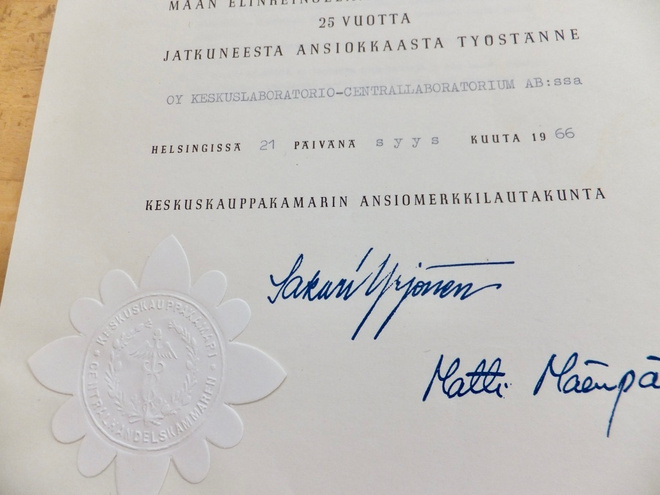 MAAN
25 VUOTTA
JATKUNEESTA ANSIOKKAASTA TYÖSTÄNNE
OY KESKUSLABORATORIO-CENTRALLABORATORIUM AB:ssa
HELSINGISSÄ 21 PÄIVÄNÄ syys KUUTA 1966
KESKUSKAUPPAKAMARIN ANSIOMERKKILAUTAKUNTA
Sakari Yrjönen
Matti Mäenpä
KESKUSKAUPPAKAMARI
CENTRALHANDELSKAMMAREN